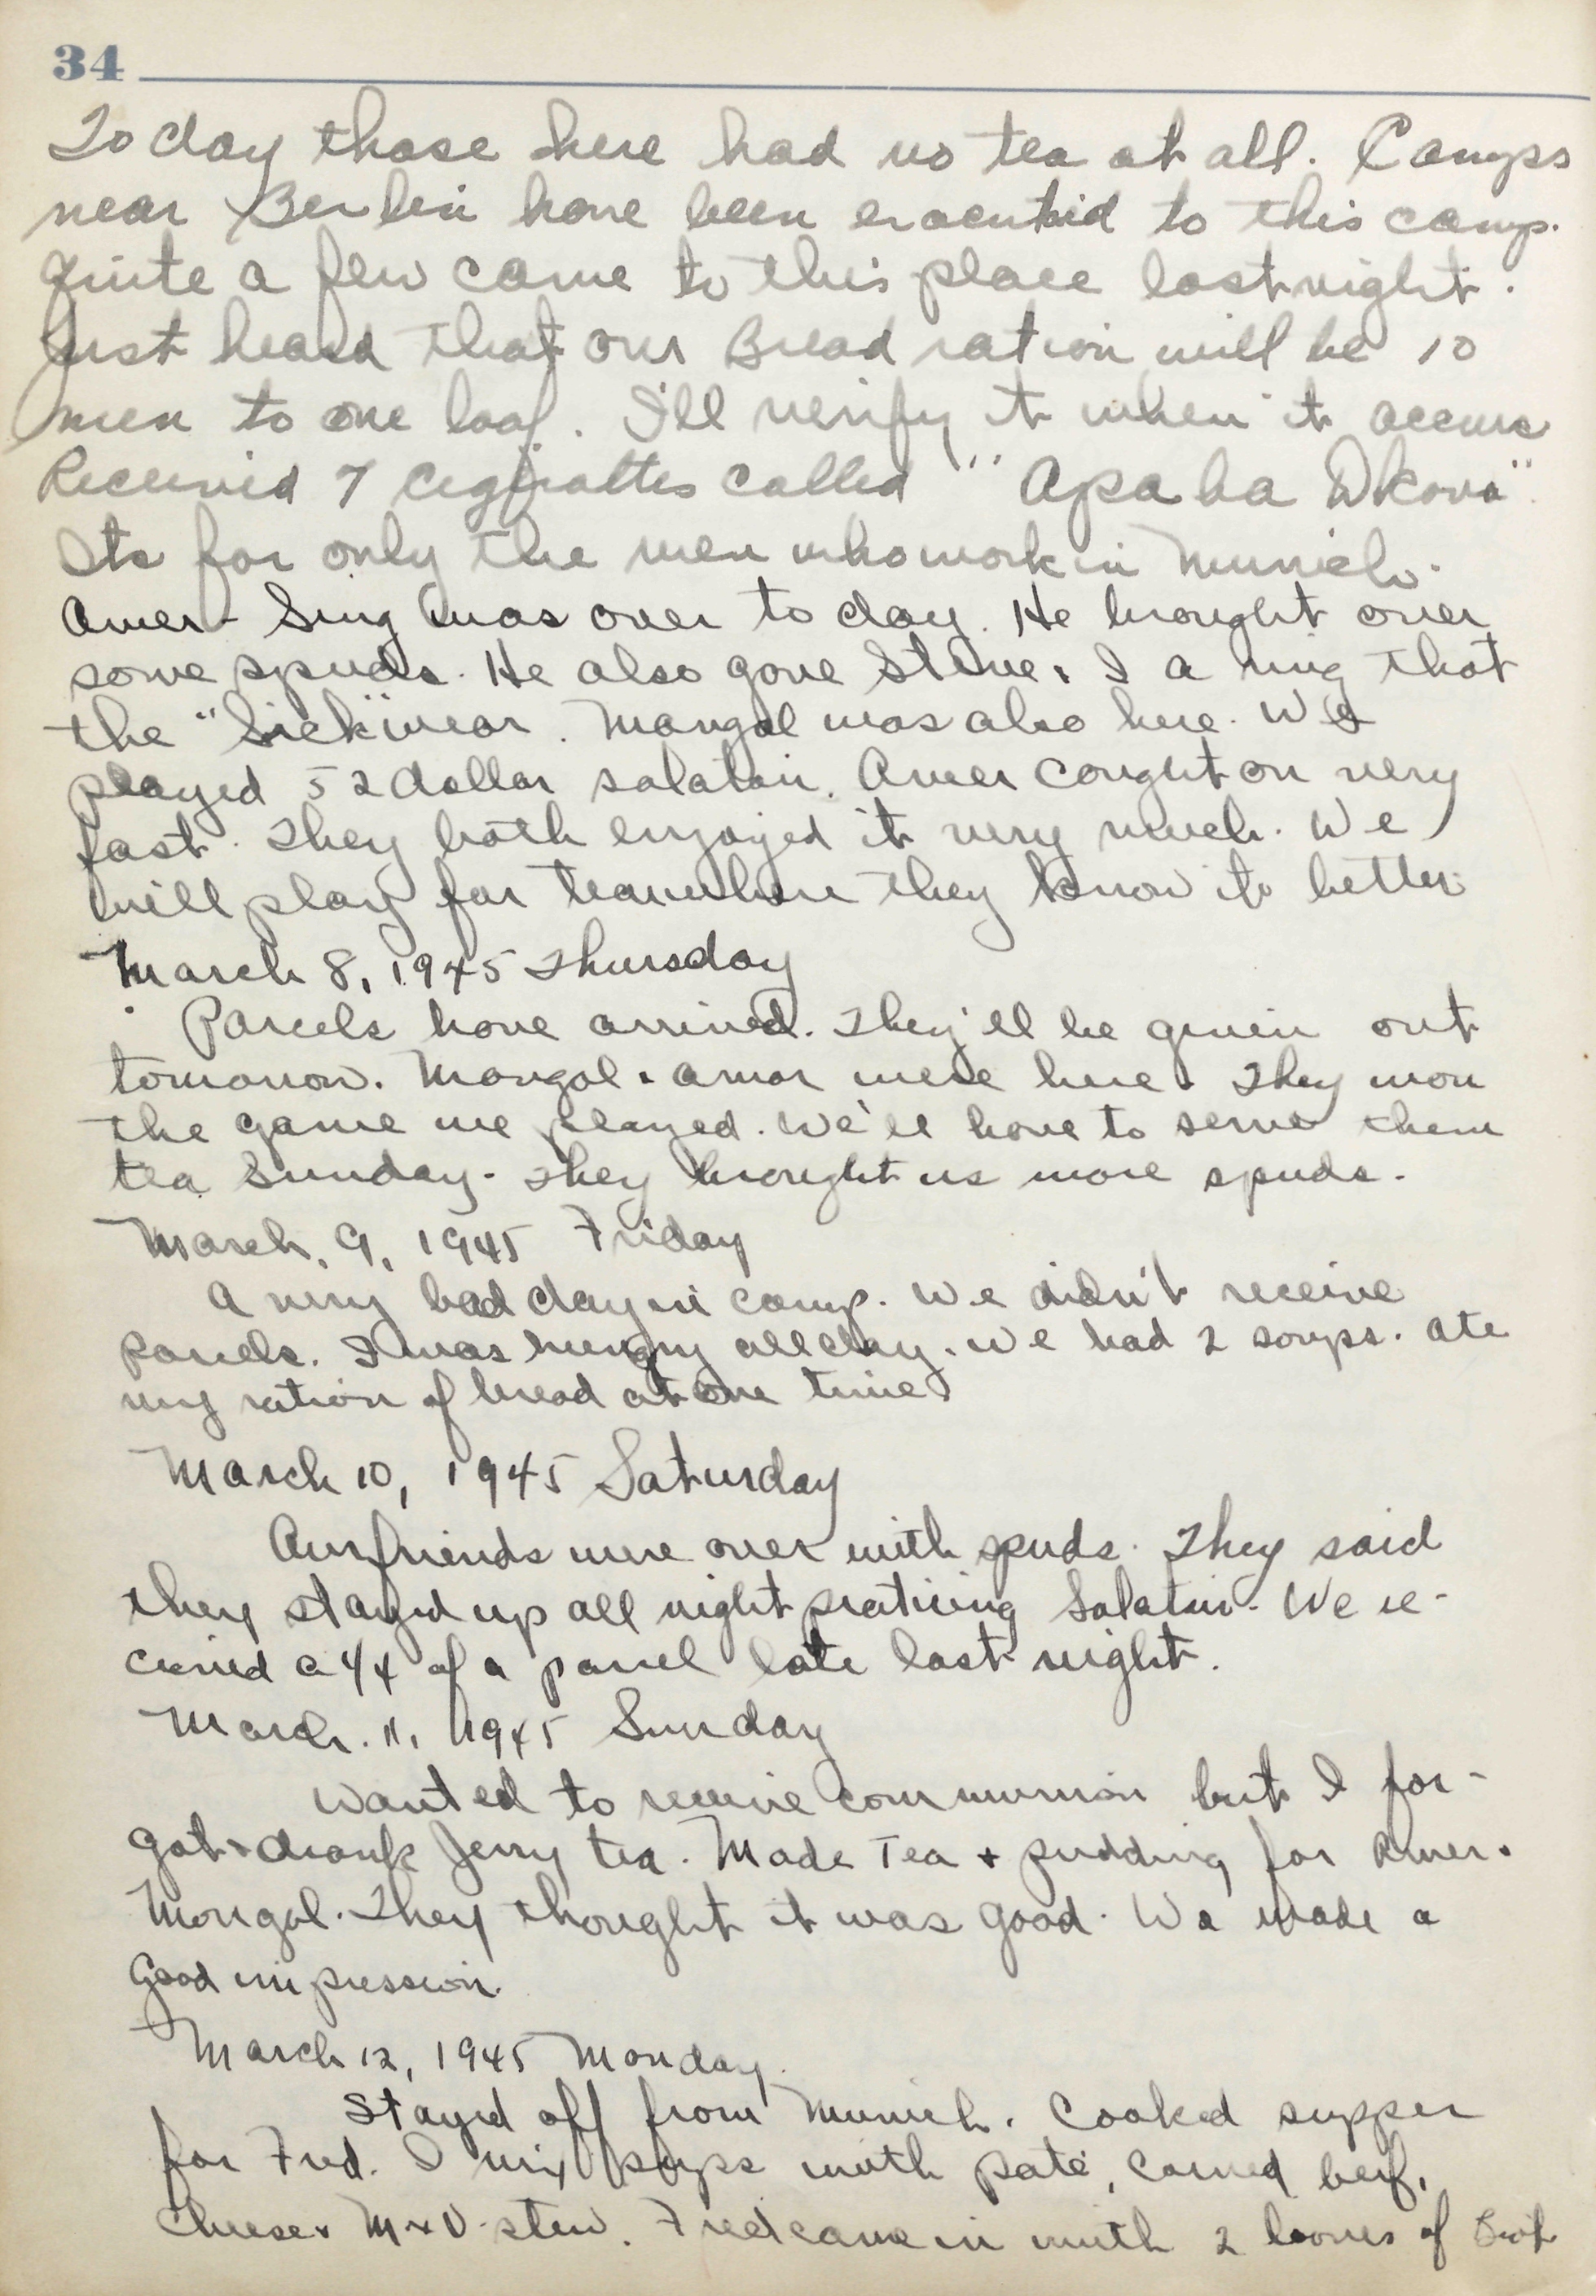 34
Today those here had no tea at all. Camps
near Berlin have been evacuated to this camp.
Quite a few came to this place last night.
Just heard that our Bread ration will be 10
men to one loaf. I'll verify it when it occurs
Received 7 called "
Its for only the men who work in Munich.
Amer Sing was over today. He brought over
some spuds. He also gave Steve & I a ring that
the "Siek" wear. Mangal was also here. We
played 52 dollar salatair. Amer caught on very
fast. They both enjoyed it very much. We
will play for tea when they know it better
March 8, 1945 Thursday
Parcels have arrived. They'll be given out
tomorrow. Mangal & Amar were here. They won
the game we played. We'll have to serve them
tea Sunday. They brought us more spuds.
March, 9, 1945 Friday
A very bad day in camp. We didn't receive
parcels. I was hungry all day. We had 2 soups. Ate
my ration of bread at one time.
March 10, 1945 Saturday
Our friends were over with spuds. They said
they stayed up all night practicing Salatair. We re-
ceived a 1/4 of a parcel late last night.
March. 11, 1945 Sunday
Wanted to receive communion but I for-
got & drank Jerry tea. Made Tea + pudding for Amer &
Mongal. They thought it was good. We made a
good impression.
March 12, 1945 Monday.
Stayed off from Munich. Cooked supper
for Fred. I mix soups with paté, corned beef,
Cheese & M & V stew. Fred came in with 2 loaves of